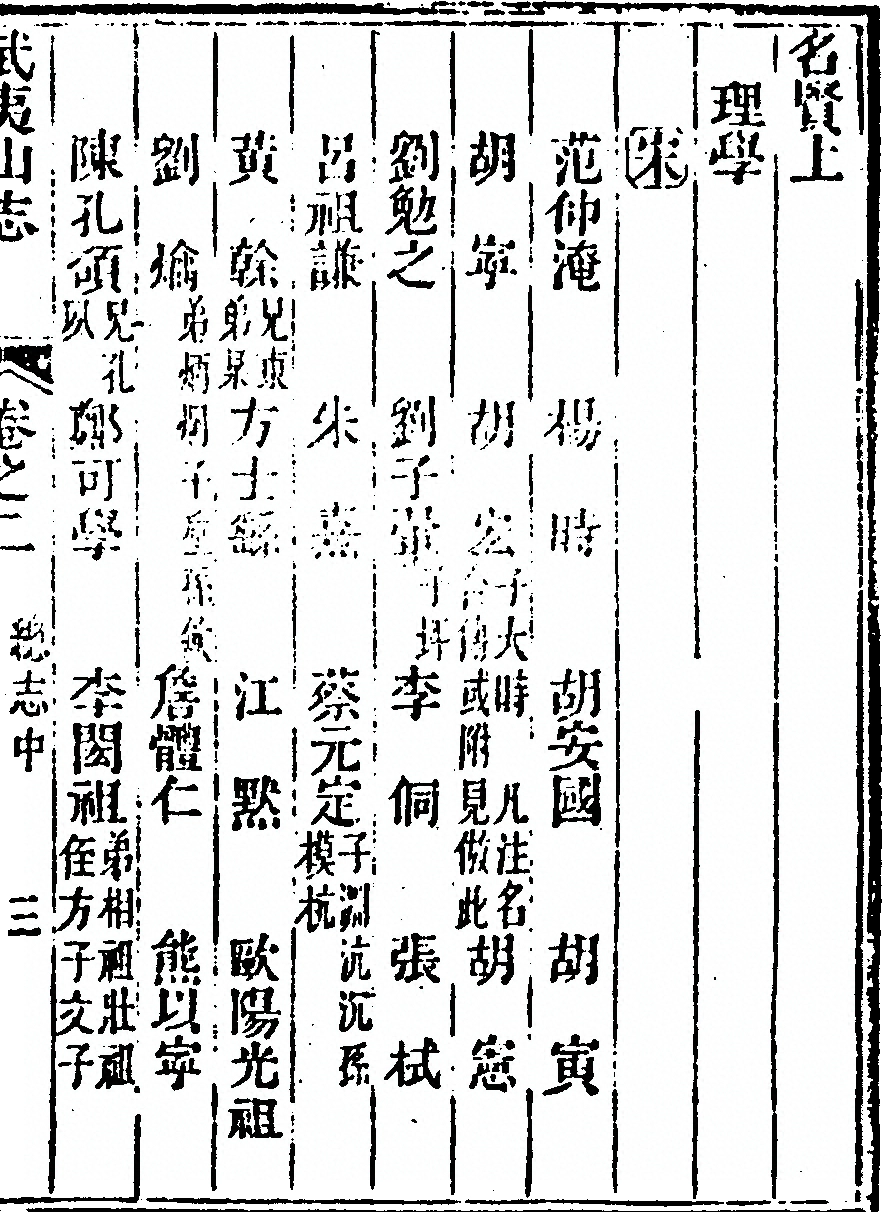 名賢上
理學
宋
范仲淹 楊時 胡安國 胡寅
胡寧 胡宏 子大時 凡注名或附見倣此 胡憲
劉勉之 劉子翬 子坪 李侗 張栻
呂祖謙 朱熹 蔡元定 子淵沆沉孫模杭
黃榦 兄東弟杲 方士繇 江默 歐陽光祖
劉爚 弟炳 子 孫欽 詹體仁 熊以寧
陳孔碩 兄孔夙 鄭可學 李閎祖 弟相祖壯祖侄方子文子
武夷山志 卷之二 總志中 三